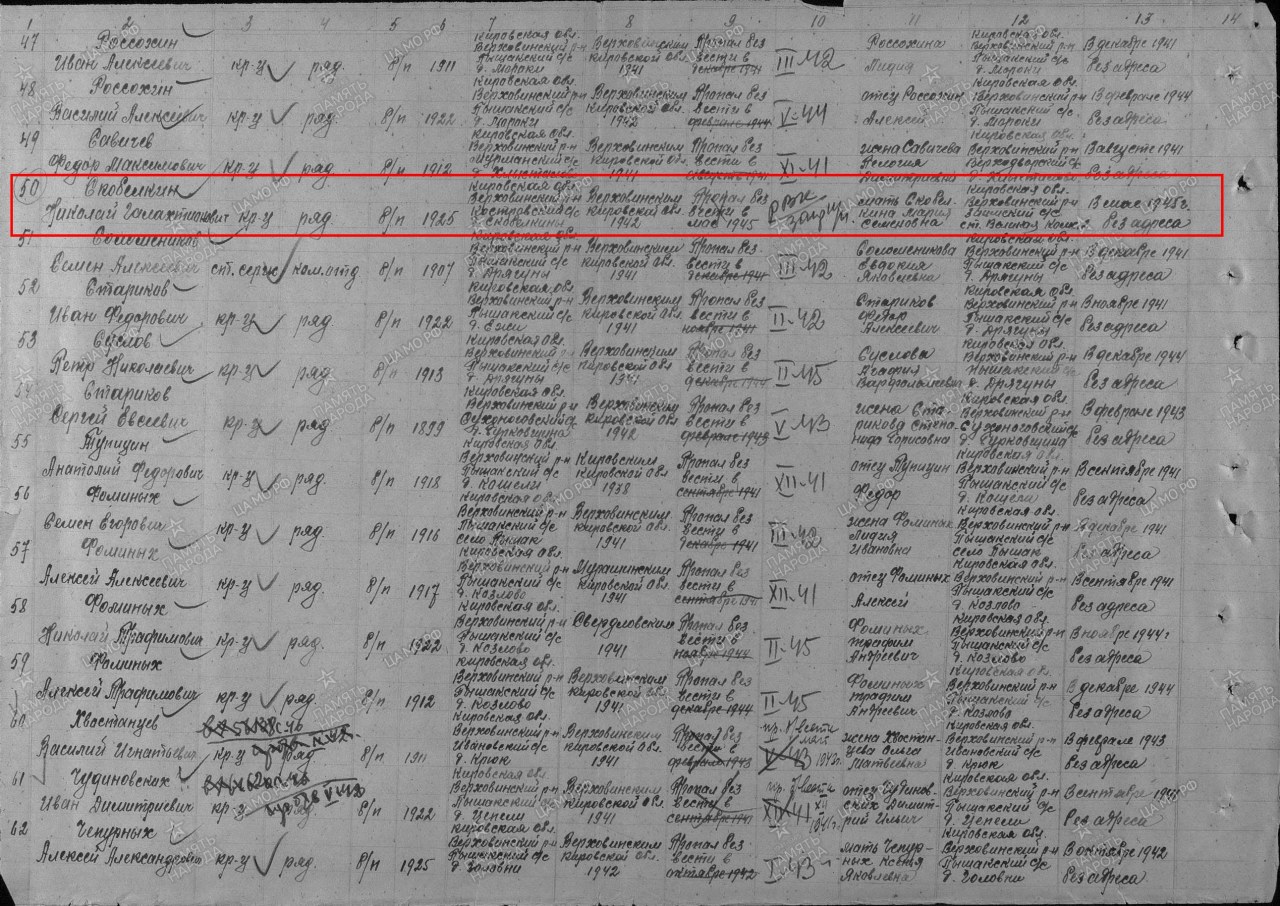 1 2 3 4 5 6 7 8 9 10 11 12 13 14
47 Россохин Иван Алексеевич кр-ц ряд. б/п 1911 Кировская обл. Верховинский р-н Пышакский с/с д. Мороки Верховинским Кировской обл. 1941 Пропал без вести в декабре 1941 III-42 Россохина Лидия Кировская обл. Верховинский р-н Пышакский с/с д. Мороки В декабре 1941 без адреса
48 Россохин Василий Алексеевич кр-ц ряд б/п 1922 Кировская обл. Верховинский р-н Пышакский с/с д. Мороки Верховинским Кировской обл. 1942 Пропал без вести в феврале 1944 V-44 отец Россохин Алексей Кировская обл. Верховинский р-н Пышакский с/с д. Мороки В феврале 1944 без адреса
49 Савичев Федор Максимович кр-ц ряд. б/п 1912 Кировская обл. Верховинский р-н с/с Верховинским Кировской обл. 1941 Пропал без вести в XI-41 жена Савичева Пелагия Кировская обл. Верховинский р-н В августе 1941 без адреса
50 Скобелкин Николай Галактионович кр-ц ряд б/п 1925 Кировская обл. Верховинский р-н Костровский с/с д. Скобелкины Верховинским Кировской обл. 1942 Пропал без вести в мае 1945 мать Скобелкина Мария Семеновна Кировская обл. Верховинский р-н с/с ст. Великая В мае 1945 г. без адреса
51 Соломеников Семен Алексеевич ст. серж ком. отд б/п 1907 Кировская обл. Верховинский р-н Пышакский с/с д. Дрягуны Верховинским Кировской обл. 1941 Пропал без вести в декабре 1941 III-42 Соломеникова Евдокия Яковлевна Кировская обл. Верховинский р-н Пышакский с/с д. Дрягуны В декабре 1941 без адреса
52 Стариков Иван Федорович кр-ц ряд б/п 1922 Кировская обл. Верховинский р-н Пышакский с/с д. Ежи Верховинским Кировской обл. 1941 Пропал без вести в ноябре 1941 II-42 Стариков Федор Алексеевич Кировская обл. Верховинский р-н Пышакский с/с д. Дрягуны В ноябре 1941 без адреса
53 Суслов Петр Николаевич кр-ц ряд. б/п 1913 Кировская обл. Верховинский р-н Пышакский с/с д. Дрягуны Верховинским Кировской обл. 1941 Пропал без вести в декабре 1944 II-45 Суслова Кировская обл. Верховинский р-н Пышакский с/с д. Дрягуны В декабре 1944 без адреса
54 Стариков Сергей Евсеевич кр-ц ряд. б/п 1899 Кировская обл. Верховинский р-н Сухоноговский с/с д. Чурковщина Верховинским Кировской обл. 1942 Пропал без вести в феврале 1943 V-43 жена Старикова Борисовна Кировская обл. Верховинский р-н Сухоноговский с/с д. Чурковщина В феврале 1943 без адреса
55 Тупицин Анатолий Федорович кр-ц ряд. б/п 1918 Кировская обл. Верховинский р-н Пышакский с/с д. Кошели Кировским Кировской обл. 1938 Пропал без вести в сентябре 1941 XII-41 отец Тупицин Федор Кировская обл. Верховинский р-н Пышакский с/с д. Кошели В сентябре 1941 без адреса
56 Фоминых Семен Егорович кр-ц ряд. б/п 1916 Кировская обл. Верховинский р-н Пышакский с/с село Пышак Верховинским Кировской обл. 1941 Пропал без вести в декабре 1941 III-42 жена Фоминых Лидия Ивановна Кировская обл. Верховинский р-н Пышакский с/с село Пышак В декабре 1941 без адреса
57 Фоминых Алексей Алексеевич кр-ц ряд. б/п 1917 Кировская обл. Верховинский р-н Пышакский с/с д. Козлово Мурашинским Кировской обл. 1941 Пропал без вести в сентябре 1941 XII-41 отец Фоминых Алексей Кировская обл. Верховинский р-н Пышакский с/с д. Козлово В сентябре 1941 без адреса
58 Фоминых Николай Трафимович кр-ц ряд. б/п 1922 Кировская обл. Верховинский р-н Пышакский с/с д. Козлово Свердловским 1941 Пропал без вести в ноябре 1944 II-45 Фоминых Трафим Андреевич Кировская обл. Верховинский р-н Пышакский с/с д. Козлово В ноябре 1944 г без адреса
59 Фоминых Алексей Трафимович кр-ц ряд. б/п 1912 Кировская обл. Верховинский р-н Пышакский с/с д. Козлово Верховинским Кировской обл. 1941 Пропал без вести в декабре 1944 II-45 Фоминых Трафим Андреевич Кировская обл. Верховинский р-н Пышакский с/с д. Козлово В декабре 1944 без адреса
60 Хвостанцев Василий Игнатьевич кр-ц ряд б/п 1911 Кировская обл. Верховинский р-н Ивановский с/с д. Крюк Верховинским Кировской обл. 1941 Пропал без вести в феврале 1943 V-43 жена Хвостанцева Ольга Матвеевна Кировская обл. Верховинский р-н Ивановский с/с д. Крюк В феврале 1943 без адреса
61 Чудиновских Иван Димитриевич кр-ц б/п 1922 Кировская обл. Верховинский р-н Пышакский с/с д. Цепели Верховинским Кировской обл. 1941 Пропал без вести в сентябре 1941 XII-41 отец Чудиновских Димитрий Ильич Кировская обл. Верховинский р-н Пышакский с/с д. Цепели В сентябре 1941 без адреса
62 Чепурных Алексей Александрович кр-ц ряд. б/п 1925 Кировская обл. Верховинский р-н Пышакский с/с д. Головни Верховинским Кировской обл. 1942 Пропал без вести в октябре 1942 I-43 мать Чепурных Яковлевна Кировская обл. Верховинский р-н Пышакский с/с д. Головни В октябре 1942 без адреса
ПАМЯТЬ НАРОДА
ЦАМО.РФ